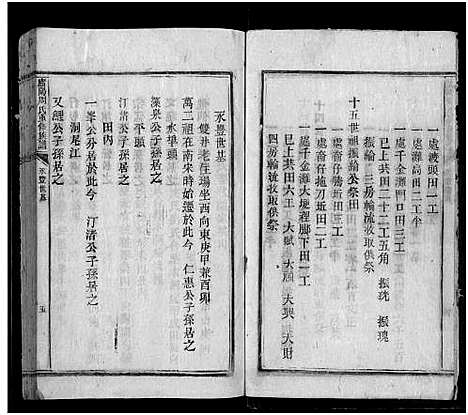 一處渡頭田一工
一處濰高田二工半
一處千金灘門口田三工
已上共田二十二工五角 振琇 振瑰
振綸 三房輪流收取供祭
十五世祖振綸公祭田
一處畲仔拋刃坵田二工
一處畲仔勞坵田三工
一處千金灘大地程腳下田一工
已上共田六工 大賦 大順 大興 大財
四房輪流收取供祭
永豐世基
雙井老在場坐西向東庚甲兼酉卯
萬二祖在南來時始遷於此今 仁惠公子孫居之
深泉公子孫居之
水準頭
汀渚公子孫居之
田內
一峯公分居於此今 汀渚公子孫居之
洞尾江
文經公子孫居之
周氏重修族譜
永豐世基
五